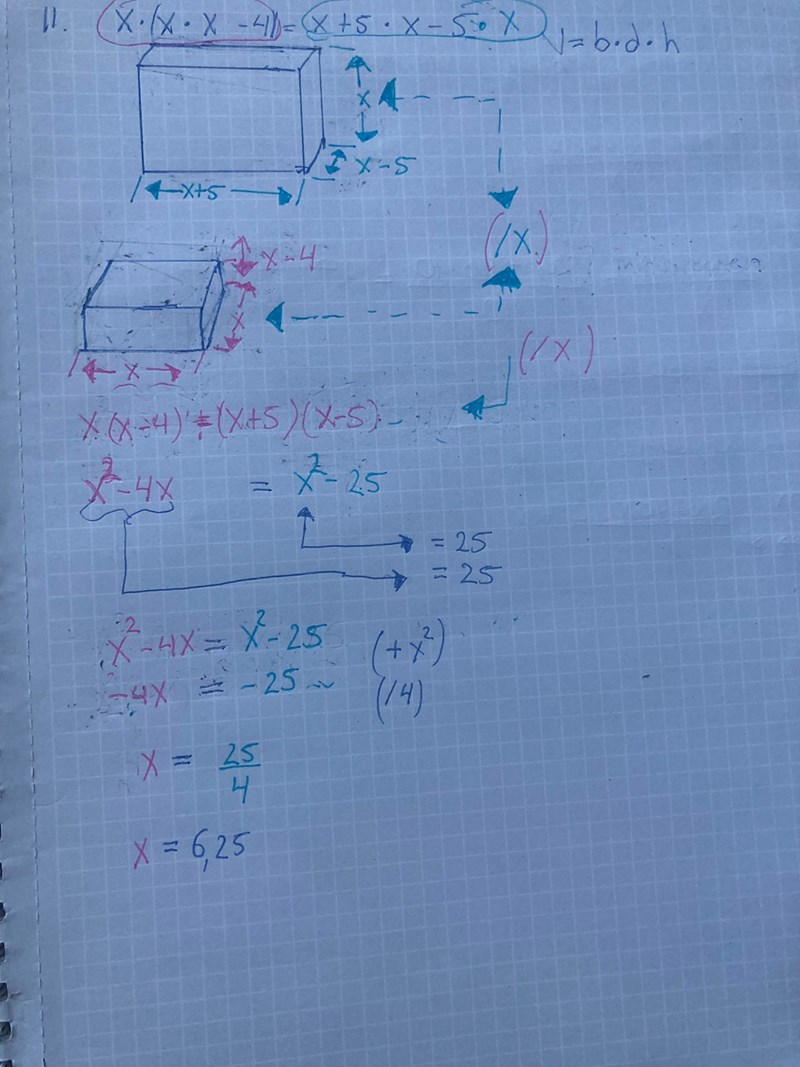 11. X·(X·X-4)=X+5·X-5·X
V=b·d·h
X
X-5
X+5
(/X)
X-4
X
X
(/X)
X(X-4)=(X+5)(X-5)
X²-4X = X²-25
=25
=25
X²-4X=X²-25 (+X²)
-4X = -25 (/4)
X = 25/4
X = 6,25